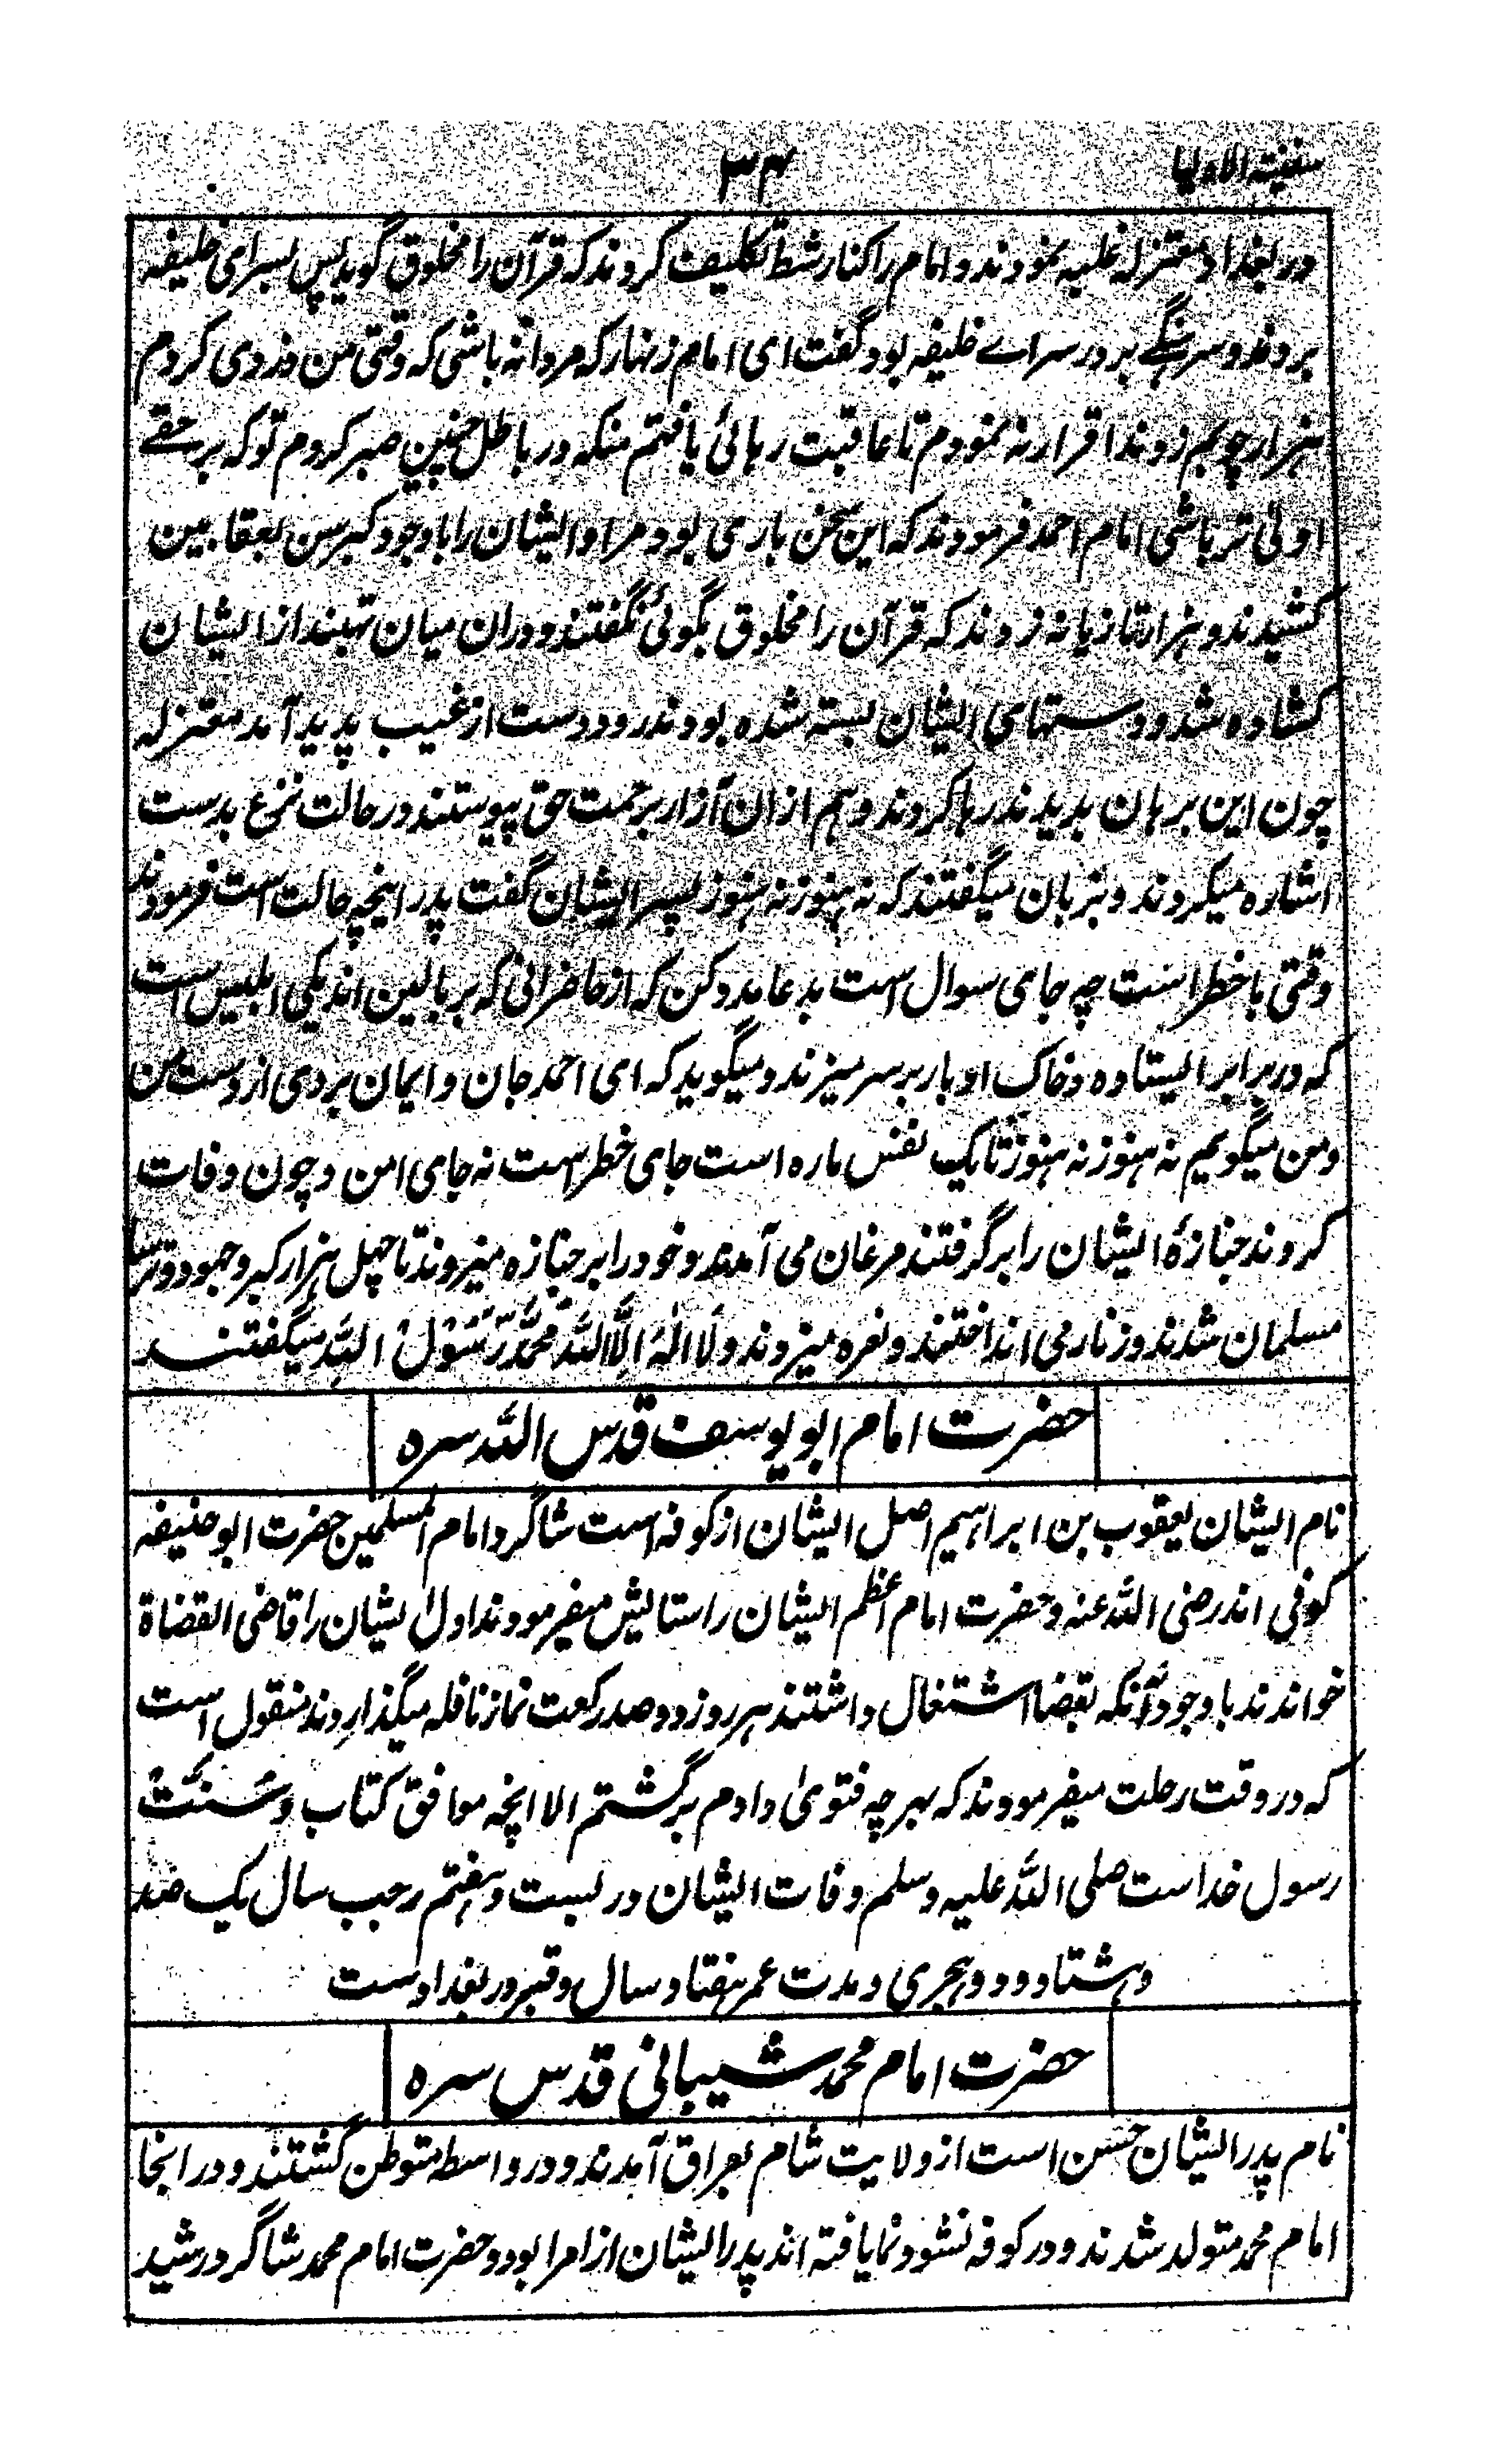 سفینة الاولیا
۳۴
در بغداد معتزله غلبه نمودند و امام را کنار شط تکلیف کردند که قرآن را مخلوق گوید پس بسرای خلیفه
بردند و سرهنگے بر در سراے خلیفه بود گفت ای امام زنهار که مردانه باشی که وقتی من دزدی کردم
هزار چوبم زدند اقرار نه نمودم تا عاقبت رهائی یافتم منکه در باطل چنین صبر کردم تو که بر حقے
اولی تر باشی امام احمد فرمودند که این سخن یاری بود مرا و ایشان را با وجود کبر سن بعقابین
کشیدند و هزار تازیانه زدند که قرآن را مخلوق بگوئی نگفتند و دران میان تهبند از ایشان
کشاده شد و دستهای ایشان بسته شده بودند رو دست از غیب پدید آمد معتزله
چون این برهان بدیدند رها کردند و هم ازان آزار برحمت حق پیوستند در حالت نزع بدست
اشاره میکردند و بزبان میگفتند که نه هنوز نه هنوز پسر ایشان گفت پدر اینچه حالت است فرمودند
وقتی با خطر است چه جای سوال است بدعا مدد کن که از حاضرانی که بر بالین اند یکی ابلیس است
که در برابر ایستاده و خاک ادبار بر سر میزند و میگوید که ای احمد جان و ایمان بردی از دست من
و من میگویم نه هنوز نه هنوز تا یک نفس ماره است جای خطر است نه جای امن و چون وفات
کردند جنازۀ ایشان را برگرفتند مرغان می آمدند و خود را بر جنازه میزدند تا چهل هزار گبر و جهود و ترسا
مسلمان شدند و زنار می انداختند و نعره میزدند و لَا اِلٰهَ اِلَّا اللّٰهُ مُحَمَّدٌ رَّسُوْلُ اللّٰهِ میگفتند
حضرت امام ابو یوسف قدس الله سره
نام ایشان یعقوب بن ابراهیم اصل ایشان از کوفه است شاگرد امام المسلمین حضرت ابو حنیفه
کوفی اند رضی الله عنه و حضرت امام اعظم ایشان را ستایش میفرمودند اول ایشان را قاضی القضاة
خواندند با وجود آنکه بقضا اشتغال داشتند هر روز دو صد رکعت نماز نافله میگذاردند منقول است
که در وقت رحلت میفرمودند که بهر چه فتویٰ دادم برگشتم الا انچه موافق کتاب و سُنّت
رسول خداست صلی الله علیه وسلم وفات ایشان در بست و هفتم رجب سال یک صد
و هشتاد و دو هجری و مدت عمر هفتاد سال و قبر در بغداد ست
حضرت امام محمد شیبانی قدس سره
نام پدر ایشان حسن است از ولایت شام بعراق آمدند و در واسطه متوطن گشتند و در انجا
امام محمد متولد شدند و در کوفه نشو و نما یافته اند پدر ایشان از امرا بود و حضرت امام محمد شاگرد رشید